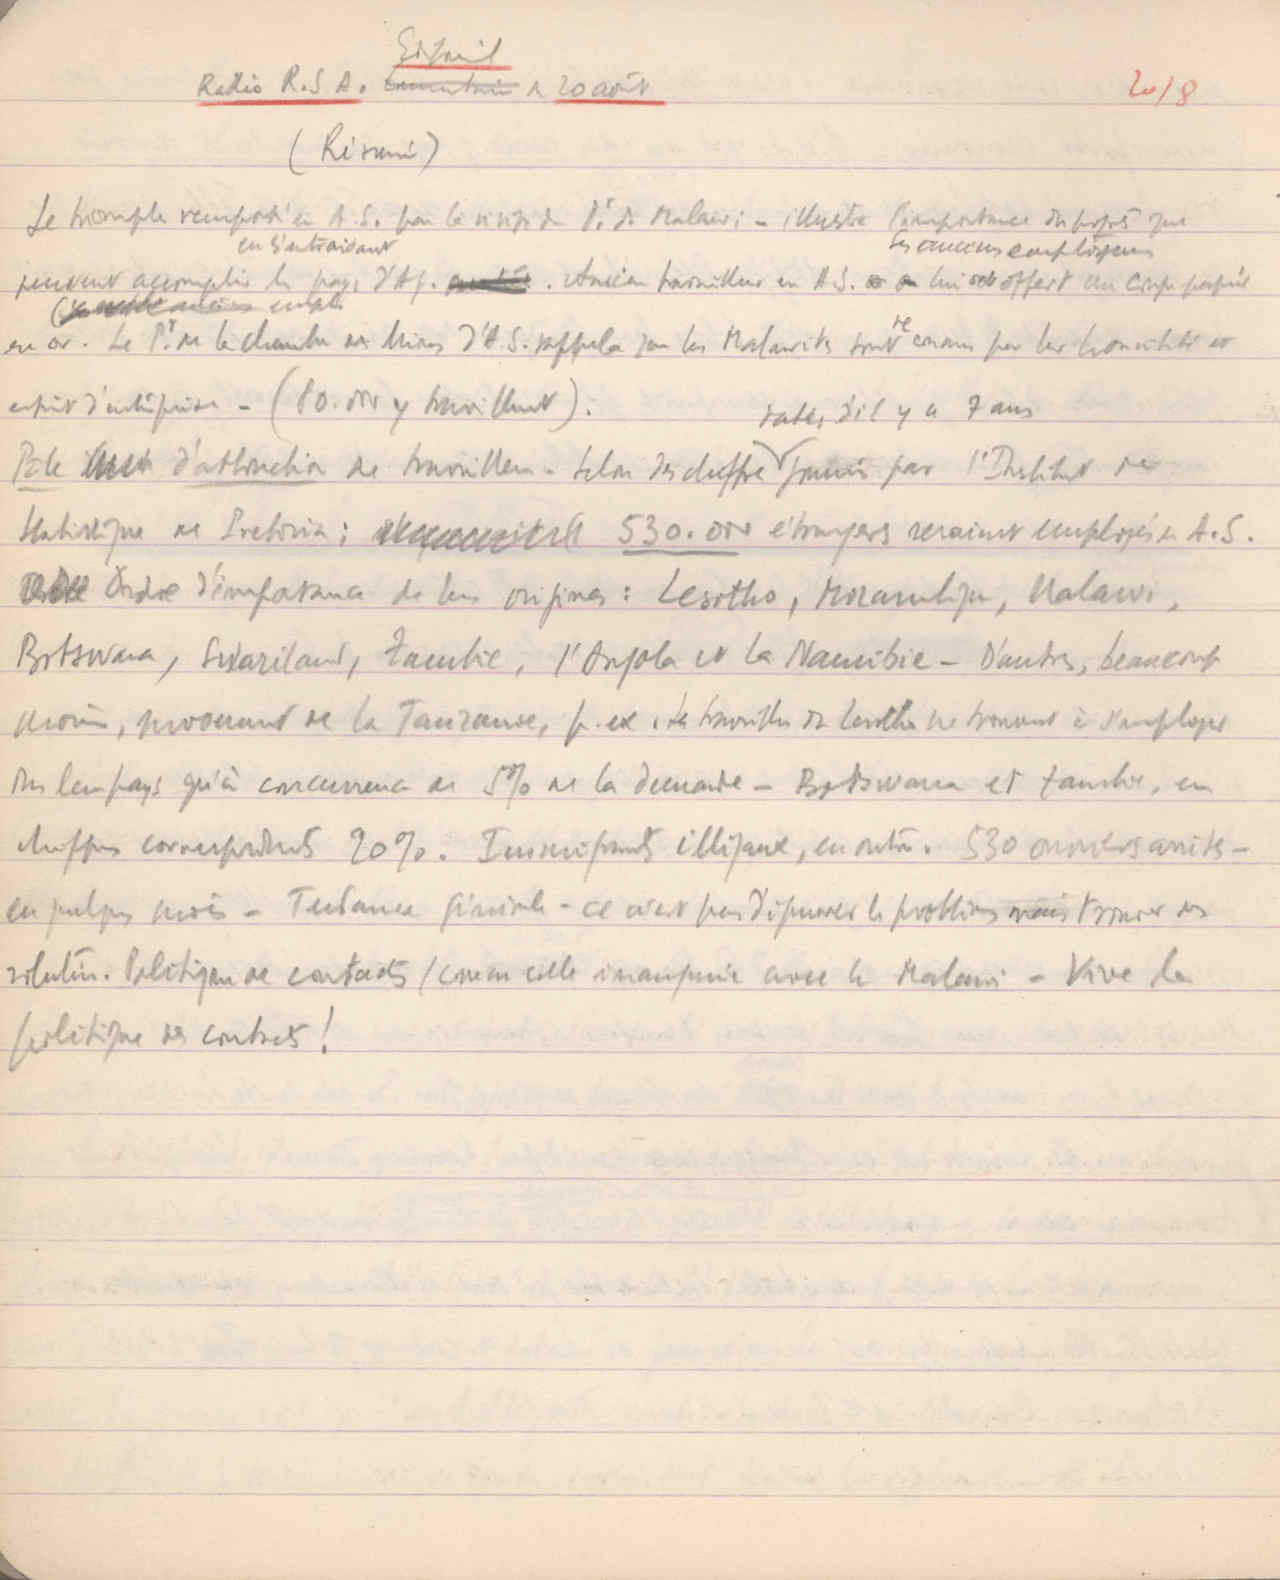 Editorial
Radio R.S.A. du 20 août
20/8
(Résumé)
Le triomphe remporté en A.S. par la visite du Pt du Malawi - illustre l'importance des progrès que
en s'entraidant
ses anciens employeurs
peuvent accomplir les pays d'Af. Ancien travailleur en A.S. lui ont offert une coupe
en or. Le Pt de la chambre des Mines d'A.S. rappela que les Malawites sont connus par leur honnêteté et
esprit d'entreprise - (80.000 y travaillent).
datés d'il y a 7 ans
Pôle d'attraction de travailleurs - Selon des chiffres fournis par l'Institut de
statistique de Pretoria : 530.000 étrangers seraient employés en A.S.
Ordre d'importance de leurs origines : Lesotho, Mozambique, Malawi,
Botswana, Swaziland, Zambie, l'Angola et la Namibie - D'autres, beaucoup
moins, proviennent de la Tanzanie, p. ex. Les travailleurs du Lesotho ne trouvent à s'employer
ds leur pays qu'à concurrence de 5% de la demande - Botswana et Zambie, en
chiffres correspondants 20%. Immigrants illégaux, en outre. 530 ouvriers arrêtés -
en quelques mois - Tendance générale - ce n'est pas d'ignorer le problème mais trouver des
solution. Politique de contacts / comme celle inaugurée avec le Malawi - Vive la
politique des contacts !